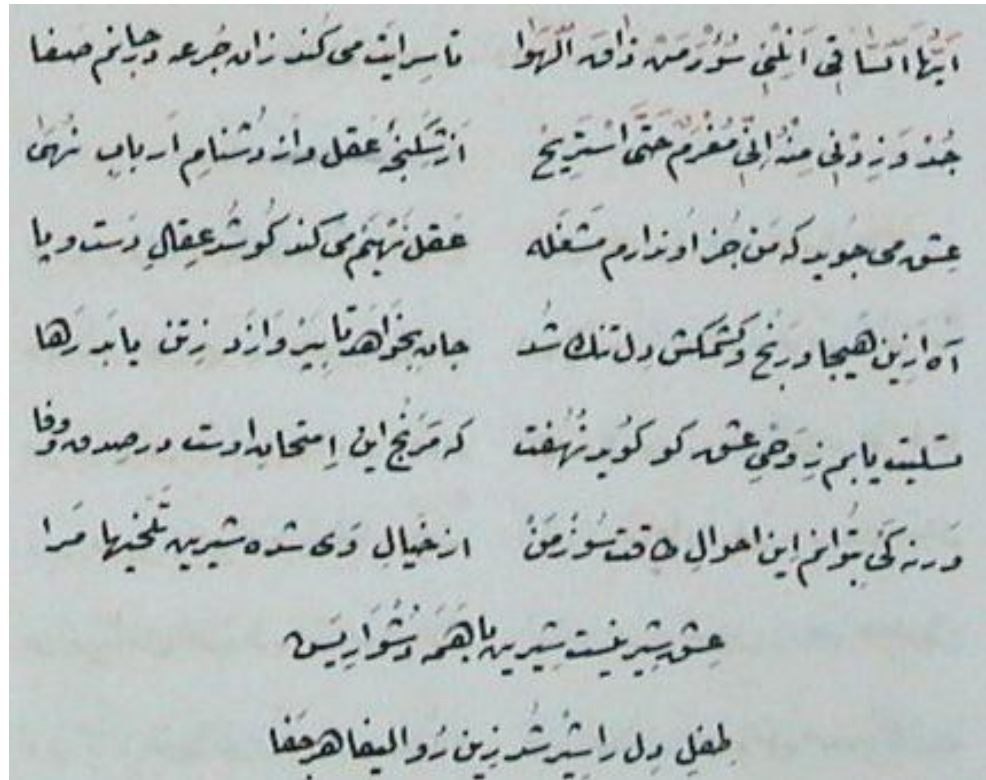 اَیُّهَا السّاقی اَنِلْنی سُؤْرَ مَنْ ذاقَ الْهَوا تا سِرایَت می کُند زان جُرعه در جانم صَفا
جُد وَ زِدْنی مِنْهُ اِنّی مُغْرَمٌ حَتّیٰ اَسْتَریحُ اَز شِکَنجهٔ عقل و از دُشنامِ اَربابِ نُهیٰ
عِشق می جوید که مَن جُز او ندارم مَشغَله عَقل نَهْیَم می کند کو شُد عِقالِ دَست و پا
آه ازین هَیجا و رَنج و کَشمکش دِل تنگ شُد جان بِخواهَد تا بِپَروازَد زِ تن یابَد رَها
تسلیت یابم زِ وَحیِ عشق کو گوید نَهُفت که مَرَنج این اِمتحان اوست در صِدق و وفا
وَرنه کَی بِتْوانم این احوالِ طاقت سُوز مَنْ از خیالِ وَی شده شیرین تَلخیها مَرا
عِشق شیرینیست شِیرین با هَمَه دُشْواریَش
طِفلِ دِل را شیر شُد زین رُو الیفا هر جَفا